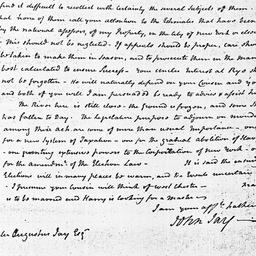 find it difficult to recollect with certainty the several Subjects of them
that some of them call your attention to the Estimates that have been
by the national assessors, of my Property, in the City of new York or else
this should not be neglected. If appeals should be proper, care sho
be taken to make them in Season, and to prosecute them in the man
best calculated to ensure Success. Your Uncles Interest at Rye sh
not be forgotten. He will naturally depend on your Cousin and yo
and both of you will I am persuaded be ready to advise & assist h
The River here is still close. the Ground is frozen, and some S
has fallen to Day. The legislature propose to adjourn on mond
among their acts are some of more than usual Importance. one
for a new System of Taxation - one for the gradual abolition of Slav
one granting extensive powers to the Corporation of new York - o
for the amendmt. of the Election Law - It is said the ensuin
Elections will in many places be warm, and the Events uncertain
I presume your Cousin will think of West Chester
is to be married and Harry is looking for a Master
I am your affte. Father
John Jay
Peter Augustus Jay Esqr